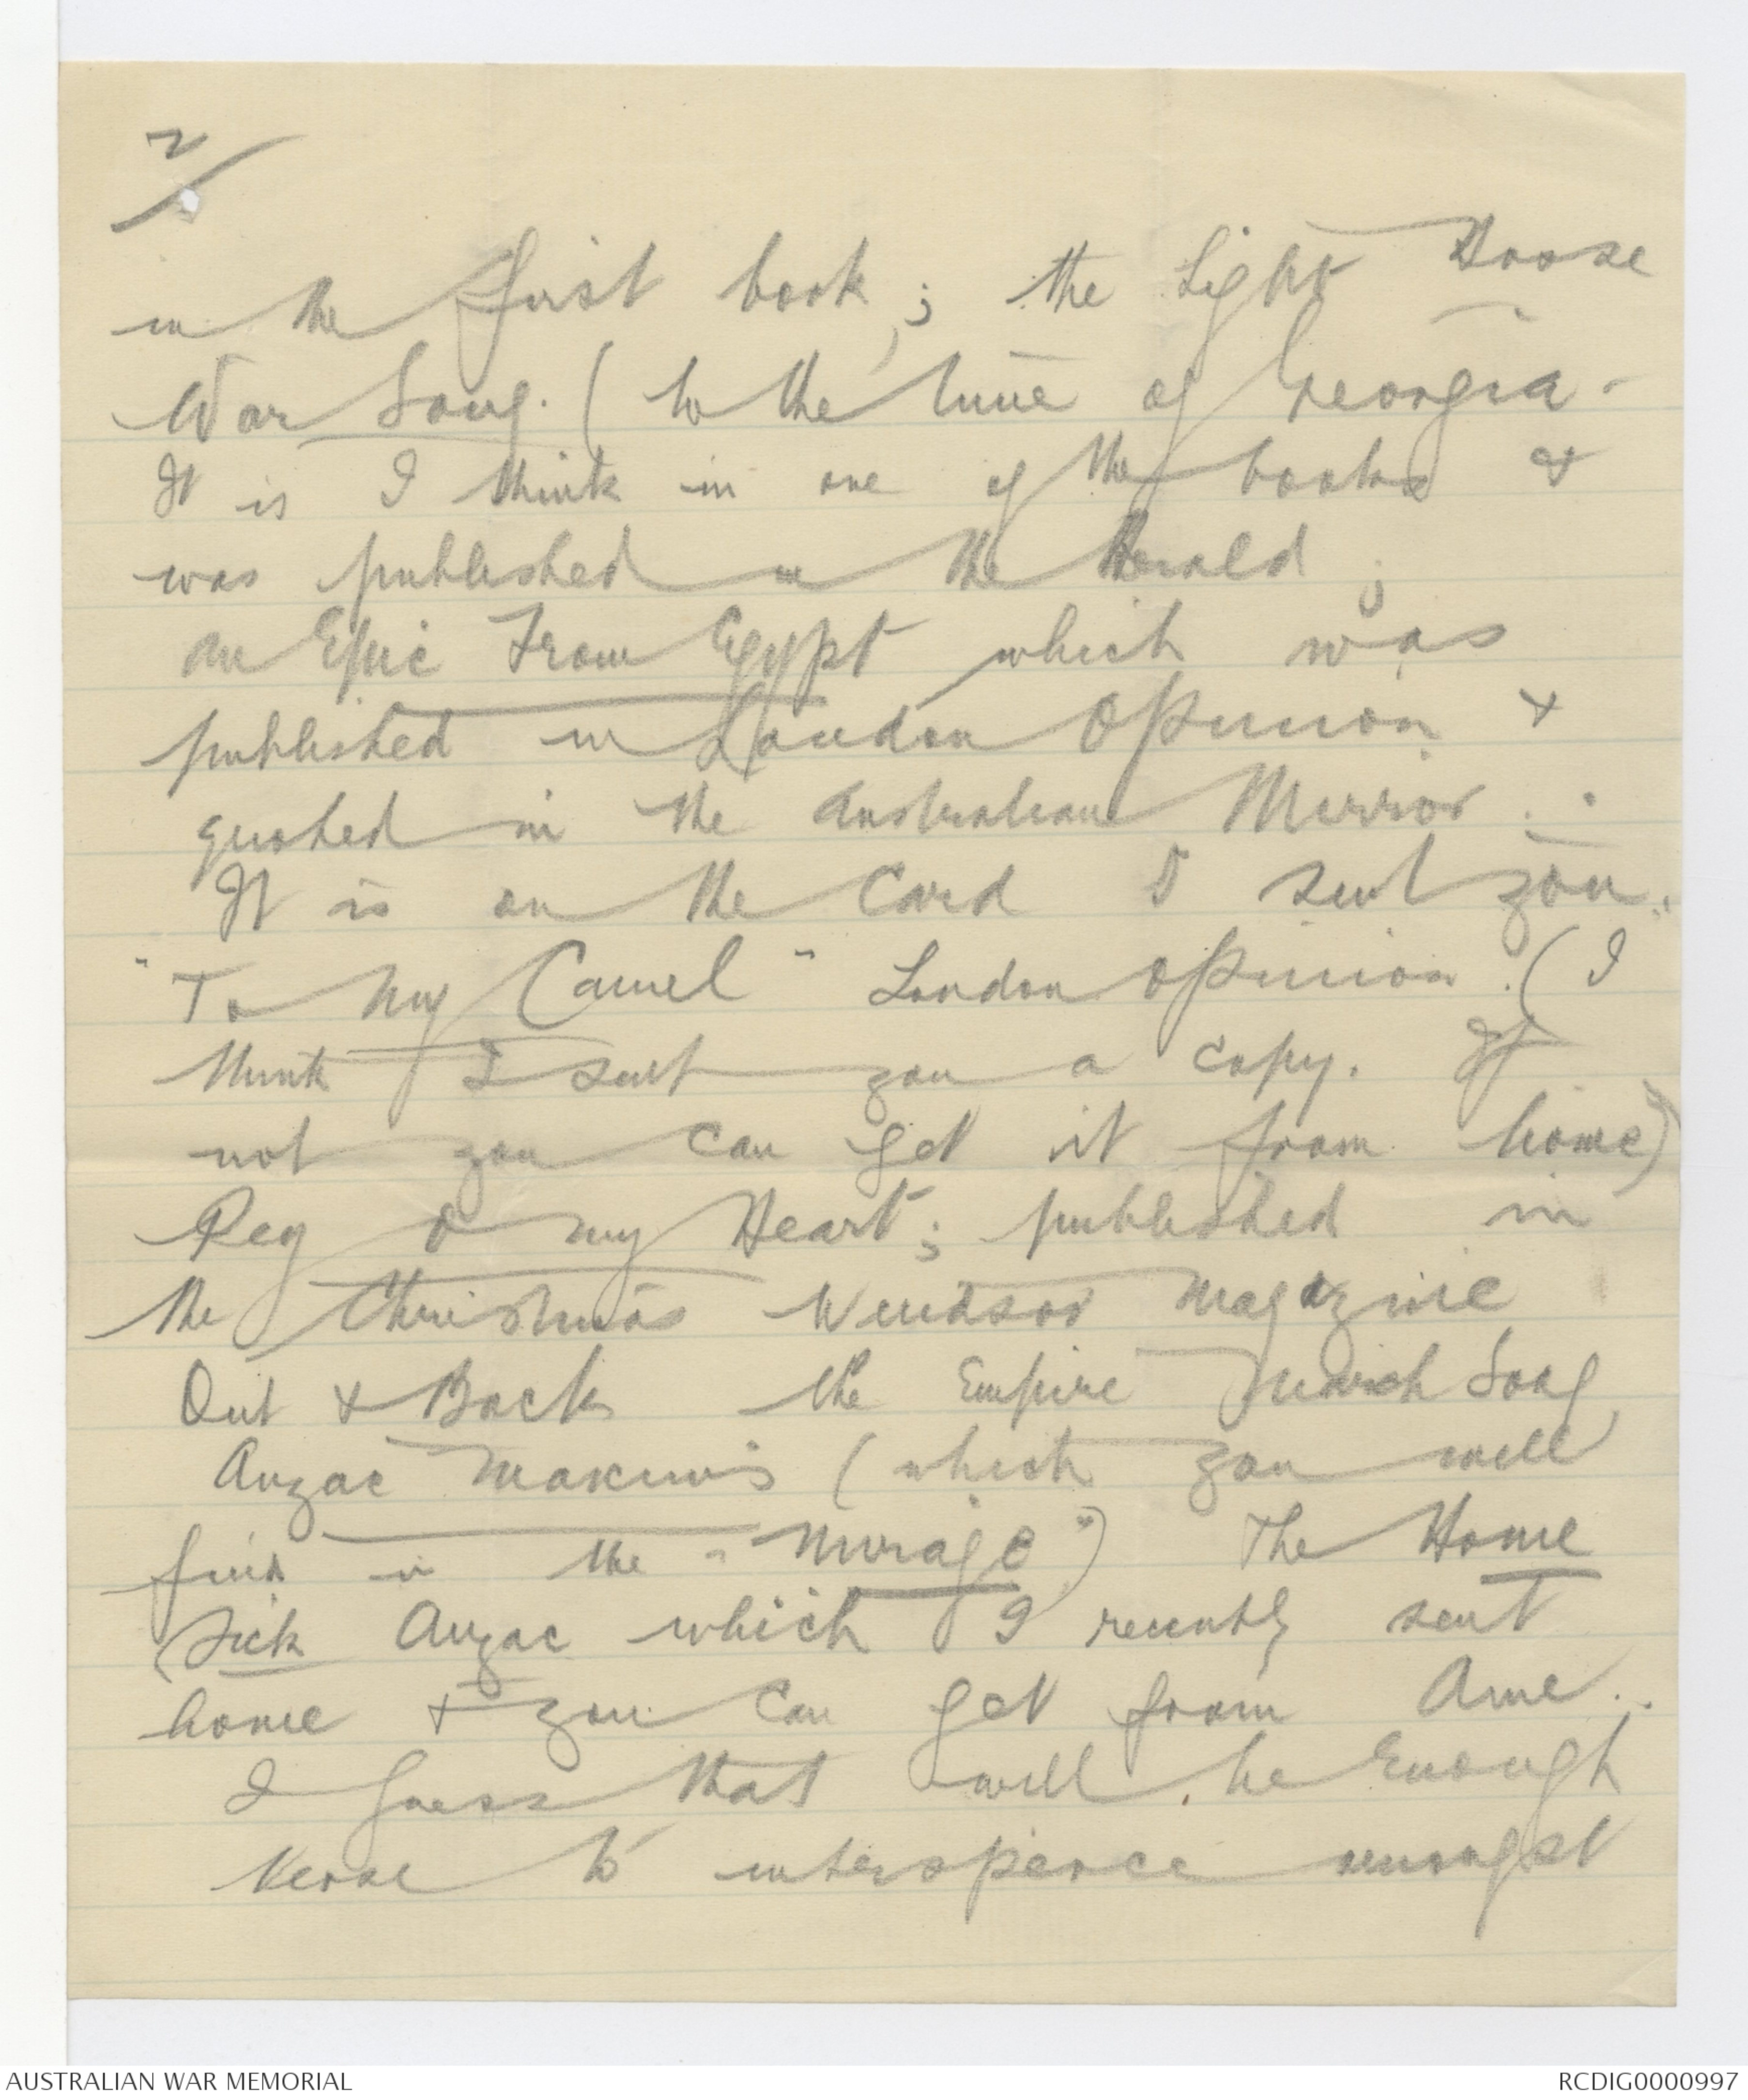 2/
in the first book; the Light Horse
War Song. (to the tune of Georgia.
It is I think in one of the books &
was published in the Herald;
An Epic From Egypt which was
published in London Opinion &
quoted in the Australian Mirror.
It is on the Card I sent you.
"To My Camel" London Opinion. (I
think I sent you a copy. If
not you can get it from home)
Peg O my Heart; published in
the Christmas Windsor Magazine
Out & Back the Empire March Song
Anzac Maxims (which you will
find in the "Mirage") The Home
Sick Anzac which I recently sent
home & you can get from Ame.
I guess that will be Enough
Verse to intersperce amongst
AUSTRALIAN WAR MEMORIAL
RCDIG0000997